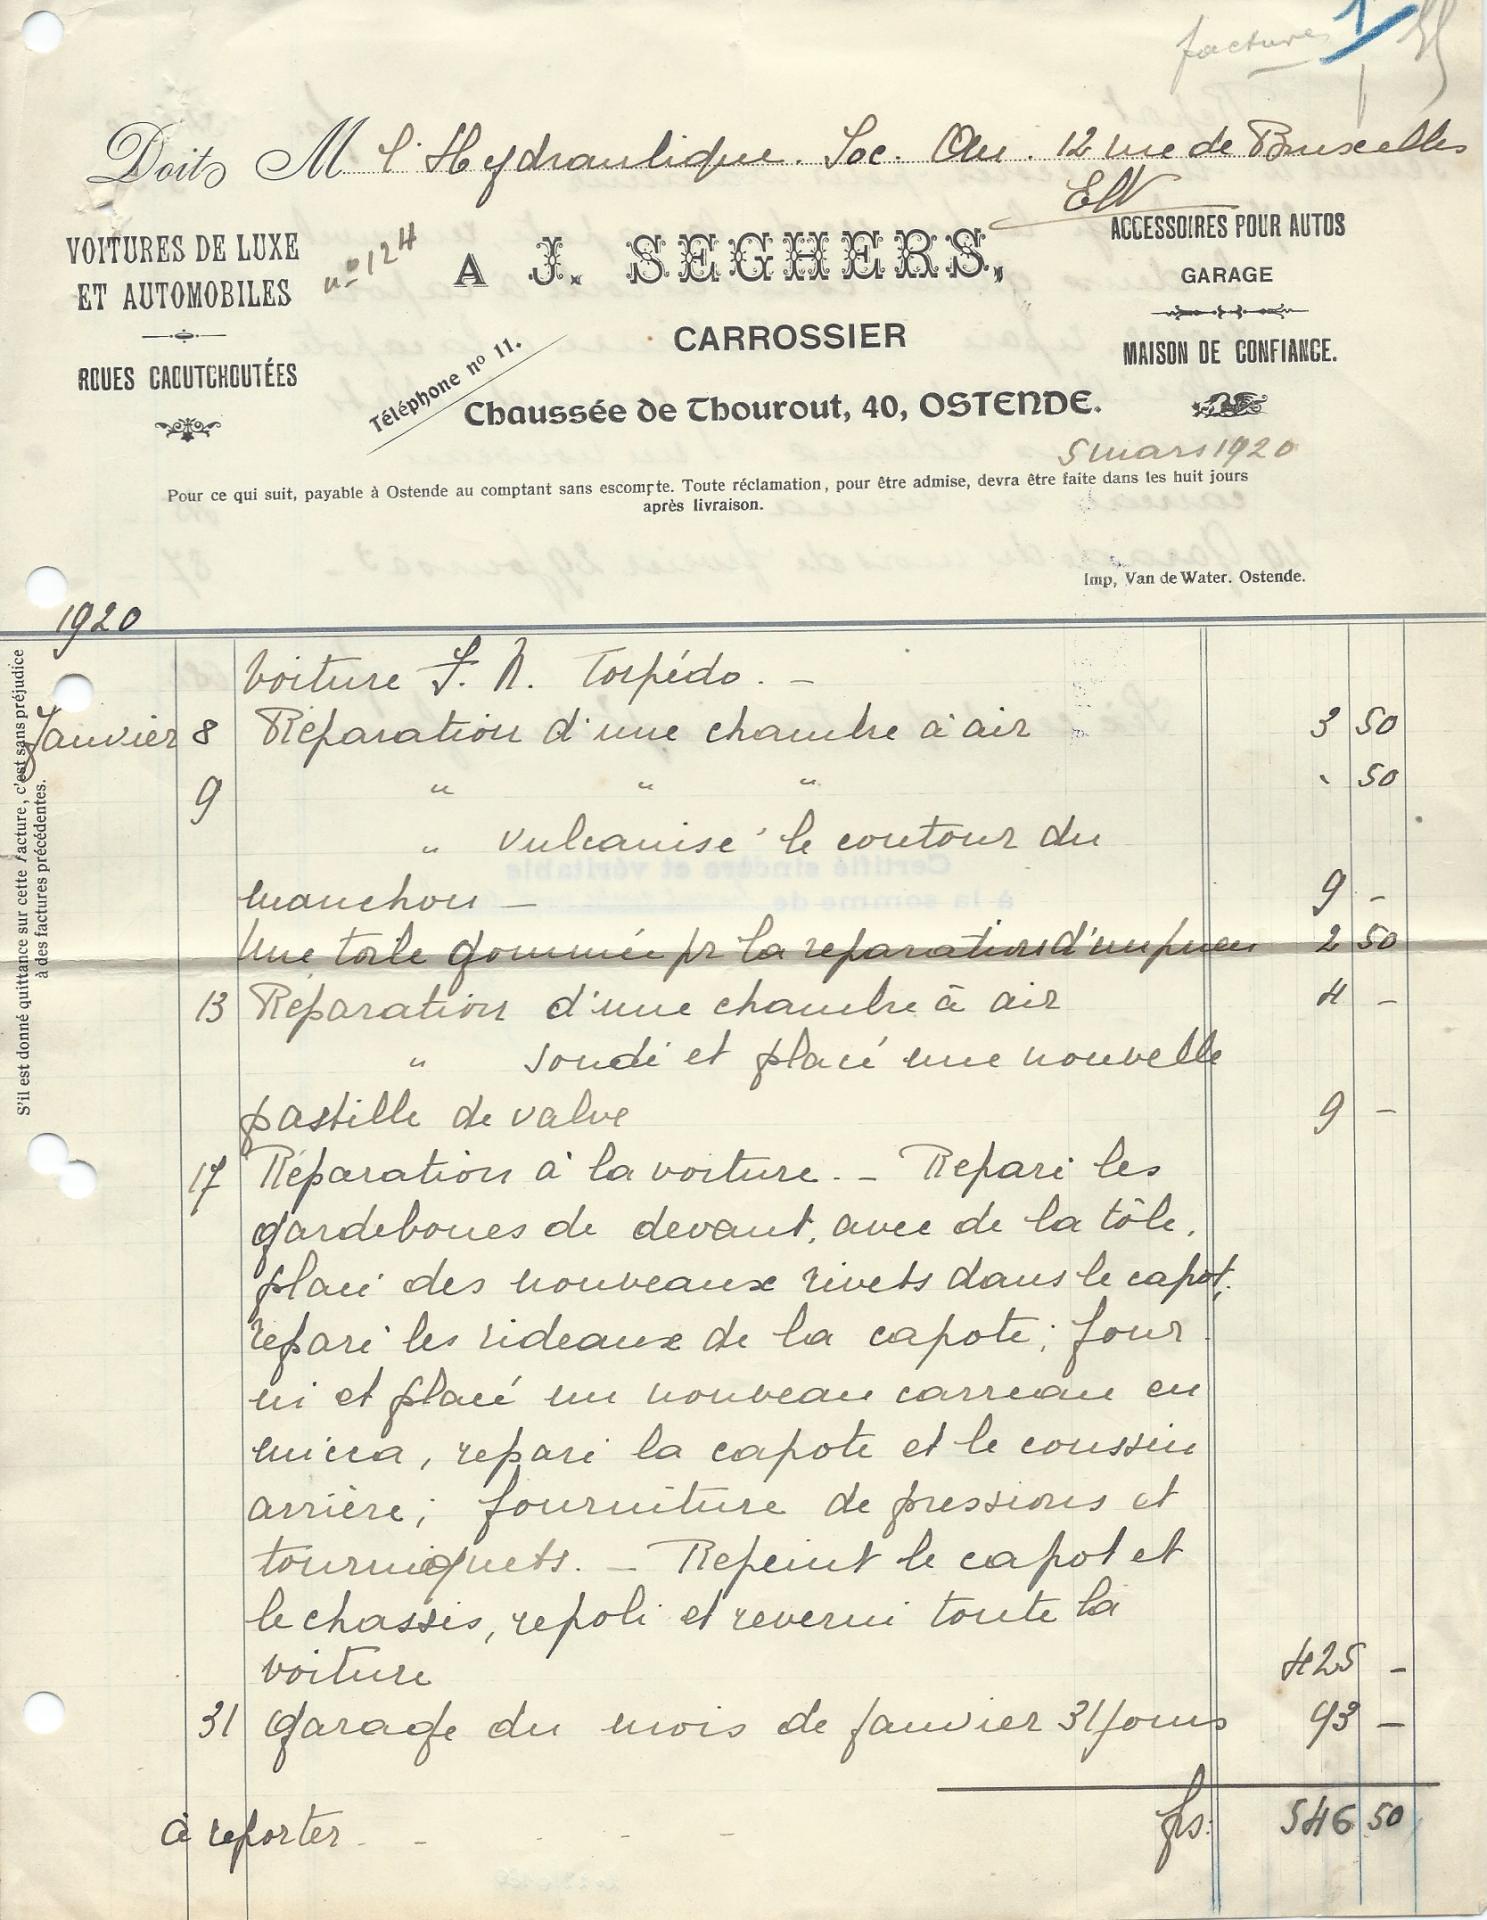 facture 1
Doit M l'Hydraulique. Soc. An. 12 rue de Bruxelles
E/V
VOITURES DE LUXE
ET AUTOMOBILES
ROUES CAOUTCHOUTÉES
nº 124
A J. SEGHERS,
CARROSSIER
Téléphone nº 11.
Chaussée de Thourout, 40, OSTENDE.
ACCESSOIRES POUR AUTOS
GARAGE
MAISON DE CONFIANCE.
5 mars 1920
Pour ce qui suit, payable à Ostende au comptant sans escompte. Toute réclamation, pour être admise, devra être faite dans les huit jours
après livraison.
Imp, Van de Water. Ostende.
1920
S'il est donné quittance sur cette facture, c'est sans préjudice
à des factures précédentes.
Voiture F. N. Torpédo. -
Janvier 8 Réparation d'une chambre à air 3 50
9 " " " . 50
" vulcanisé le contour du
manchon - 9 -
Une toile gommée pr la reparation d'un pneu 2 50
13 Réparation d'une chambre à air 4 -
" soudé et placé une nouvelle
pastille de valve 9 -
17 Réparation à la voiture. - Reparé les
gardeboues de devant, avec de la tôle,
placé des nouveaux rivets dans le capot,
reparé les rideaux de la capote; four
ni et placé un nouveau carreau en
micca, reparé la capote et le coussin
arrière; fourniture de pressions et
tourniquets. - Repeint le capot et
le chassis, repoli et reverni toute la
voiture 425 -
31 Garage du mois de Janvier 31 jours 93 -
à reporter - - - - - frs: 546 50